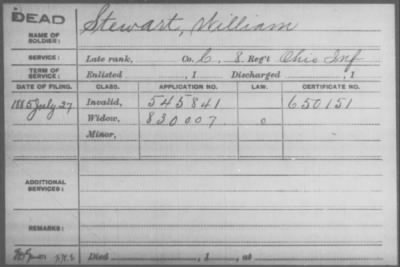 DEAD
Stewart, William
NAME OF SOLDIER:
SERVICE: Late rank, Co. C, 8 Reg't Ohio Inf
TERM OF SERVICE: Enlisted , 1 Discharged , 1
DATE OF FILING. CLASS. APPLICATION NO. LAW. CERTIFICATE NO.
1885 July 27 Invalid, 545841 650151
Widow, 830007 0
Minor,
ADDITIONAL SERVICES:
REMARKS:
Died , 1 , at